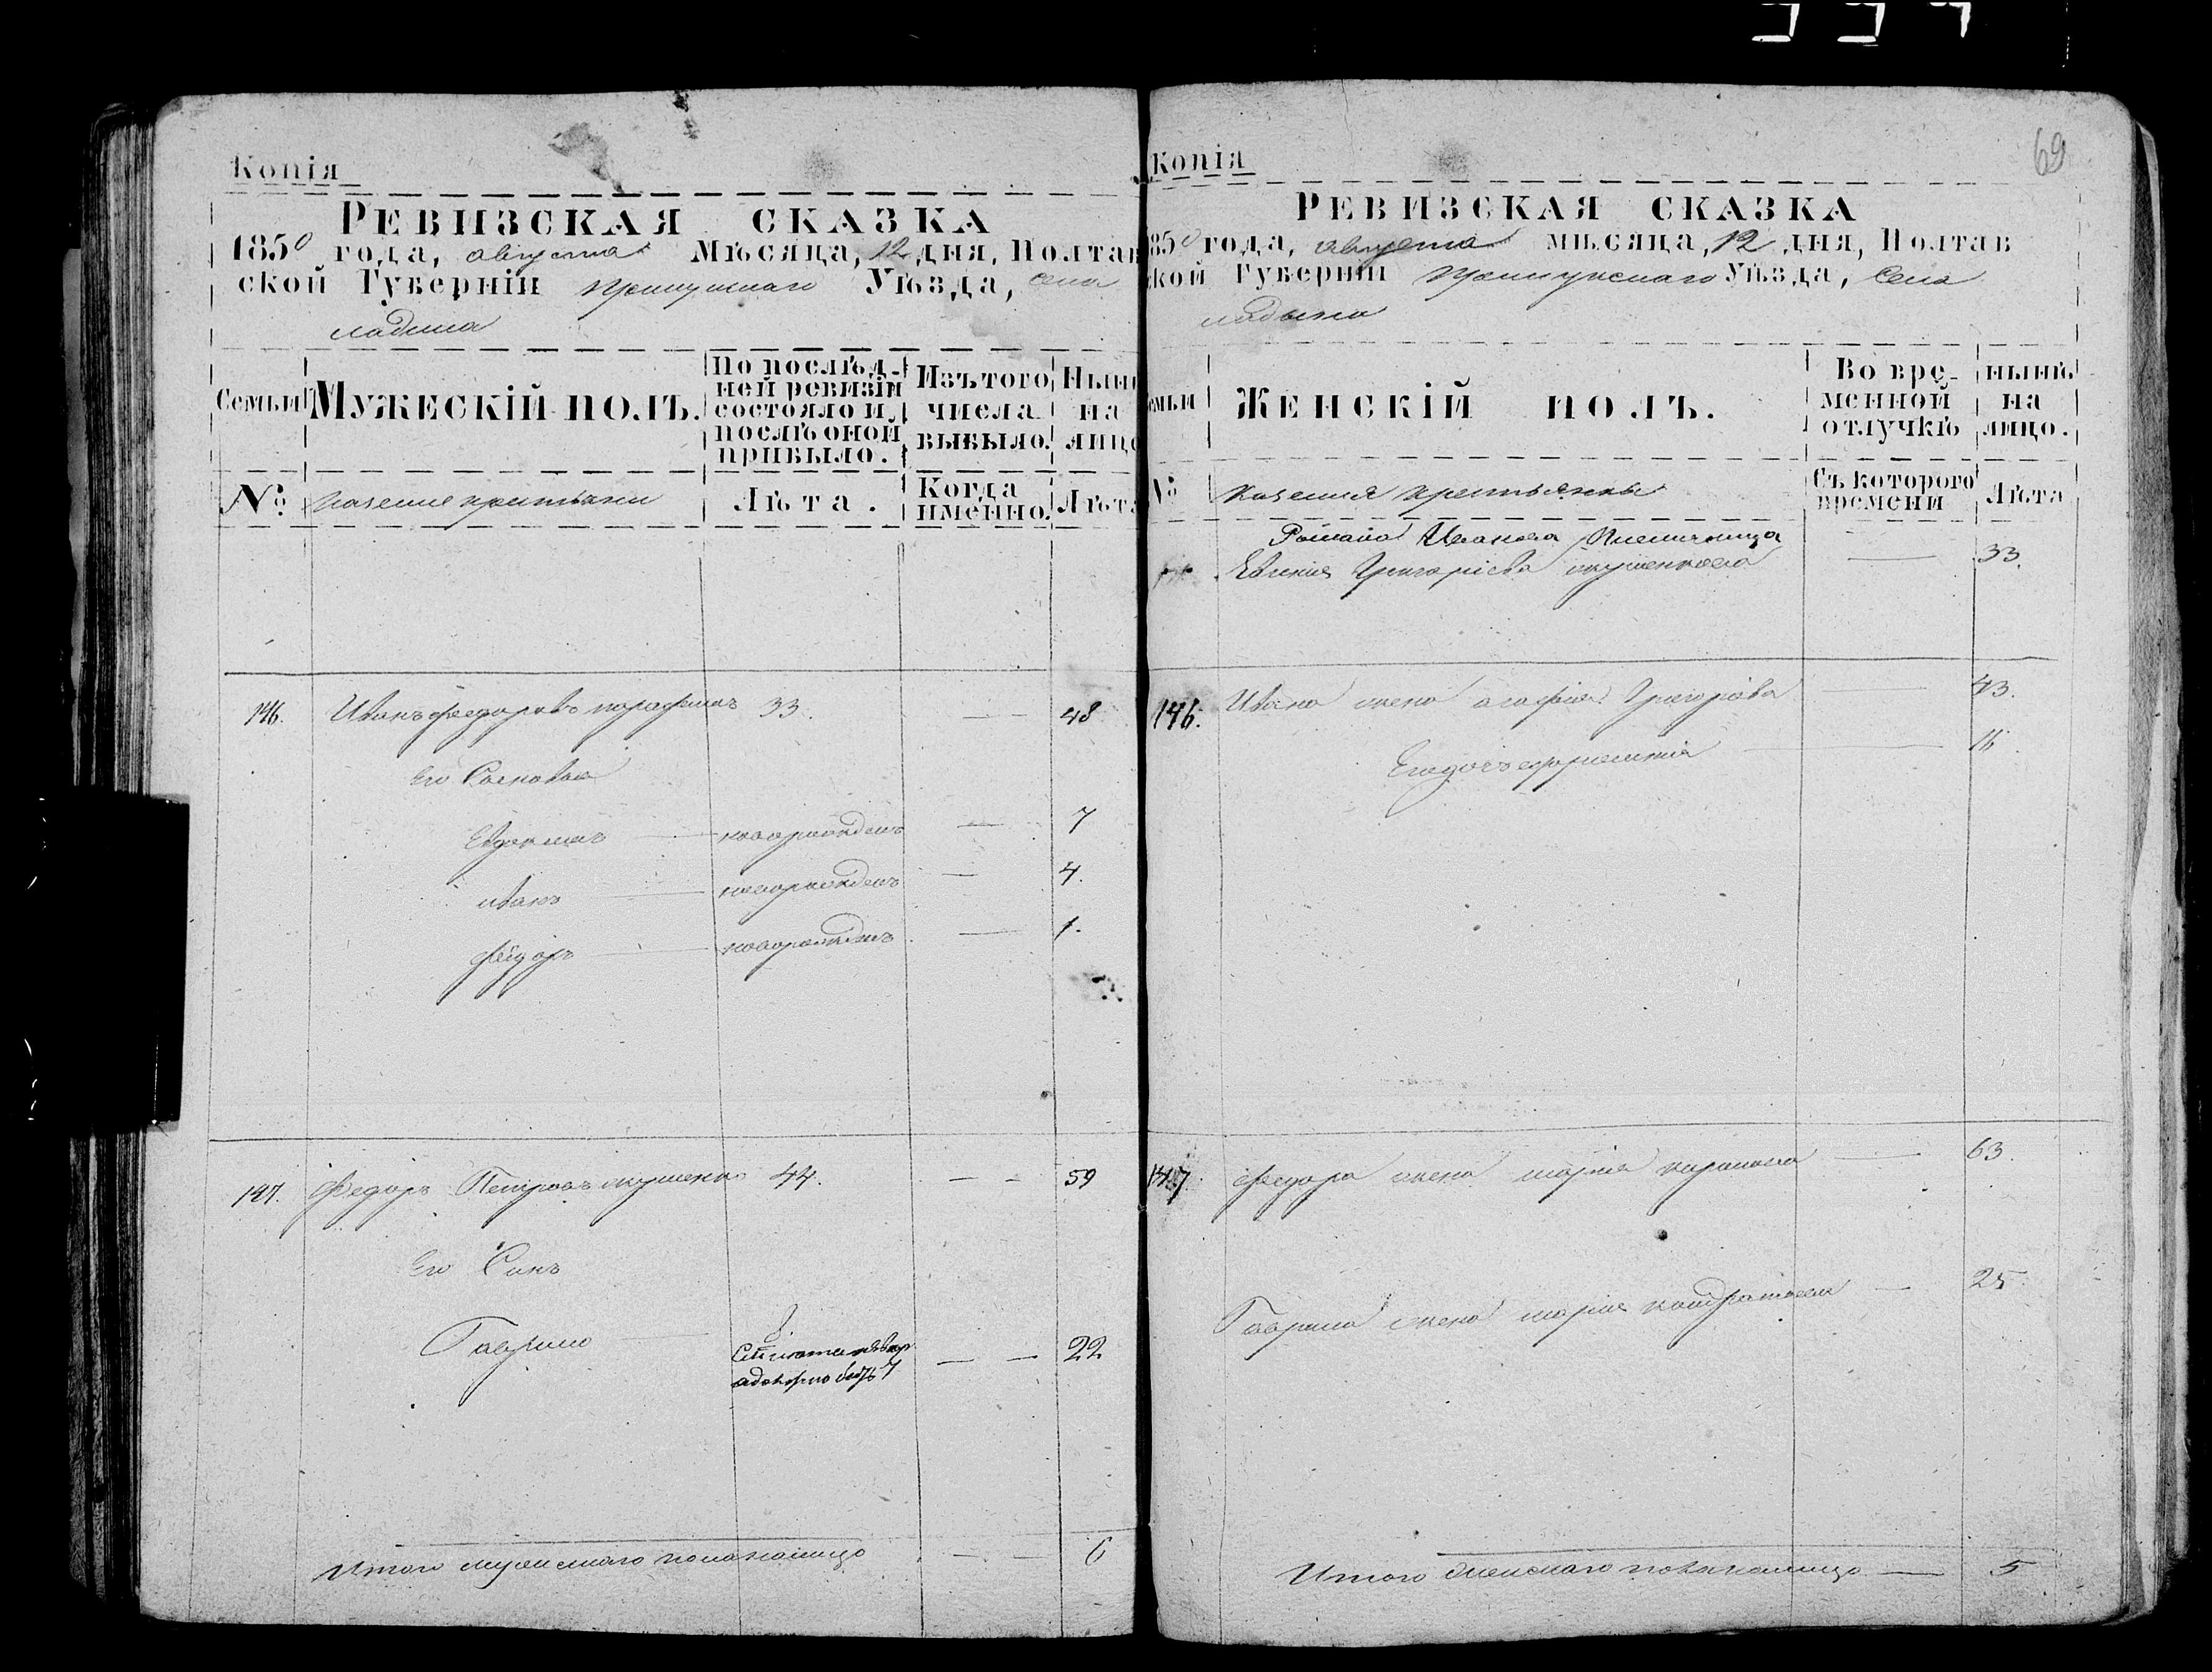 69
Копія
РЕВИЗСКАЯ СКАЗКА
1850 года, августа Мѣсяца, 12 дня, Полтав
ской Губерніи Прилуцкаго Уѣзда, села
ладина
Семьи
МУЖЕСКІЙ ПОЛЪ.
По послѣд-
ней ревизіи
состояло и
послѣ оной
прибыло.
Изъ того
числа
выбыло.
Нын
на
лицо
№
казенные крестьяне
Лѣта.
Когда
именно.
Лѣта
146. Иванъ федоровъ 33. 48
Его Сыновья
Евдокимъ новорожденъ 7
иванъ новорожденъ 4.
федоръ новорожденъ 1.
147. Федоръ Петровъ 44. 59
Его Сынъ
Гаврило 22
7
Итого мужескаго пола налицо 6
Копія
РЕВИЗСКАЯ СКАЗКА
850 года, августа мѣсяца, 12 дня, Полтав
ской Губерніи Прилуцкаго Уѣзда, Села
ладына
емьи
ЖЕНСКІЙ ПОЛЪ.
Во вре-
менной
отлучкѣ
нынѣ
на
лицо.
№
казенныя крестьянки
Съ котораго
времени
Лѣта
Романа Иванова
Евгения Григоріева 33.
146. Ивана жена агафия Григоріева 43.
Его дочь 16.
147 федора жена марія 63.
Гаврила жена марія кондратьева 25.
Итого женскаго пола налицо 5